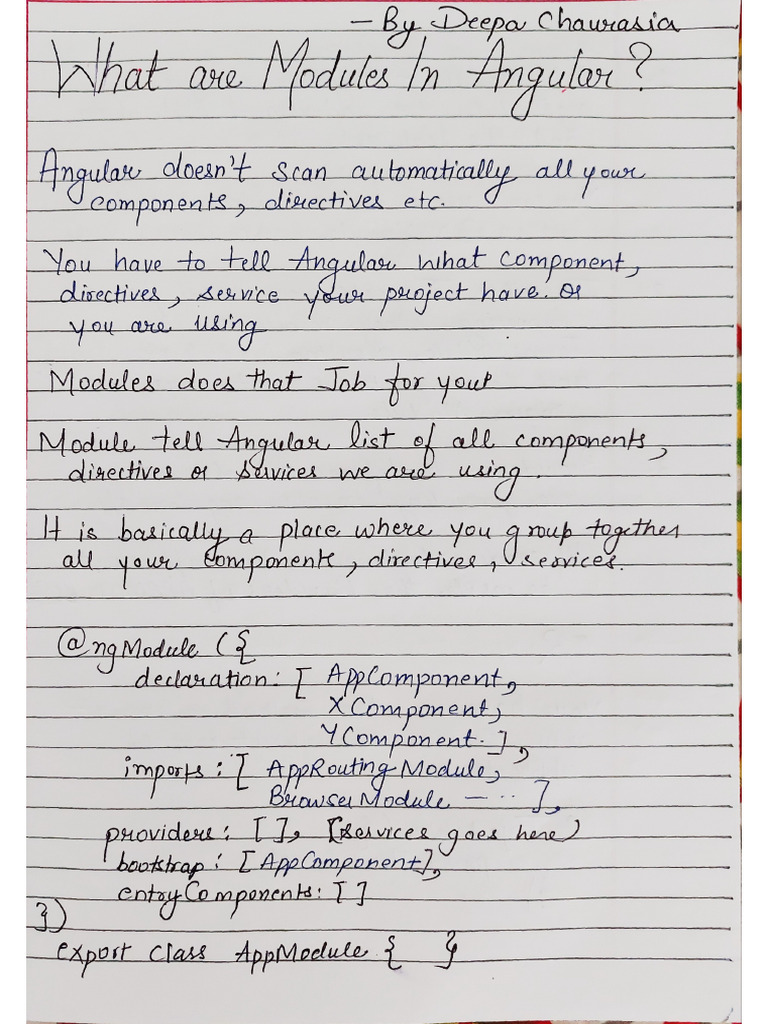 - By Deepa Chaurasia
What are Modules In Angular?
Angular doesn't scan automatically all your
components, directives etc.
You have to tell Angular what component,
directives, service your project have. or
you are using
Modules does that Job for your
Module tell Angular list of all components,
directives or services we are using.
It is basically a place where you group together
all your components, directives, services.
@ngModule ({
declaration: [ AppComponent,
XComponent,
YComponent. ],
imports: [ AppRoutingModule,
BrowserModule - .. ],
providers: [ ], [services goes here)
bootstrap: [AppComponent],
entryComponents: [ ]
})
export class AppModule { }